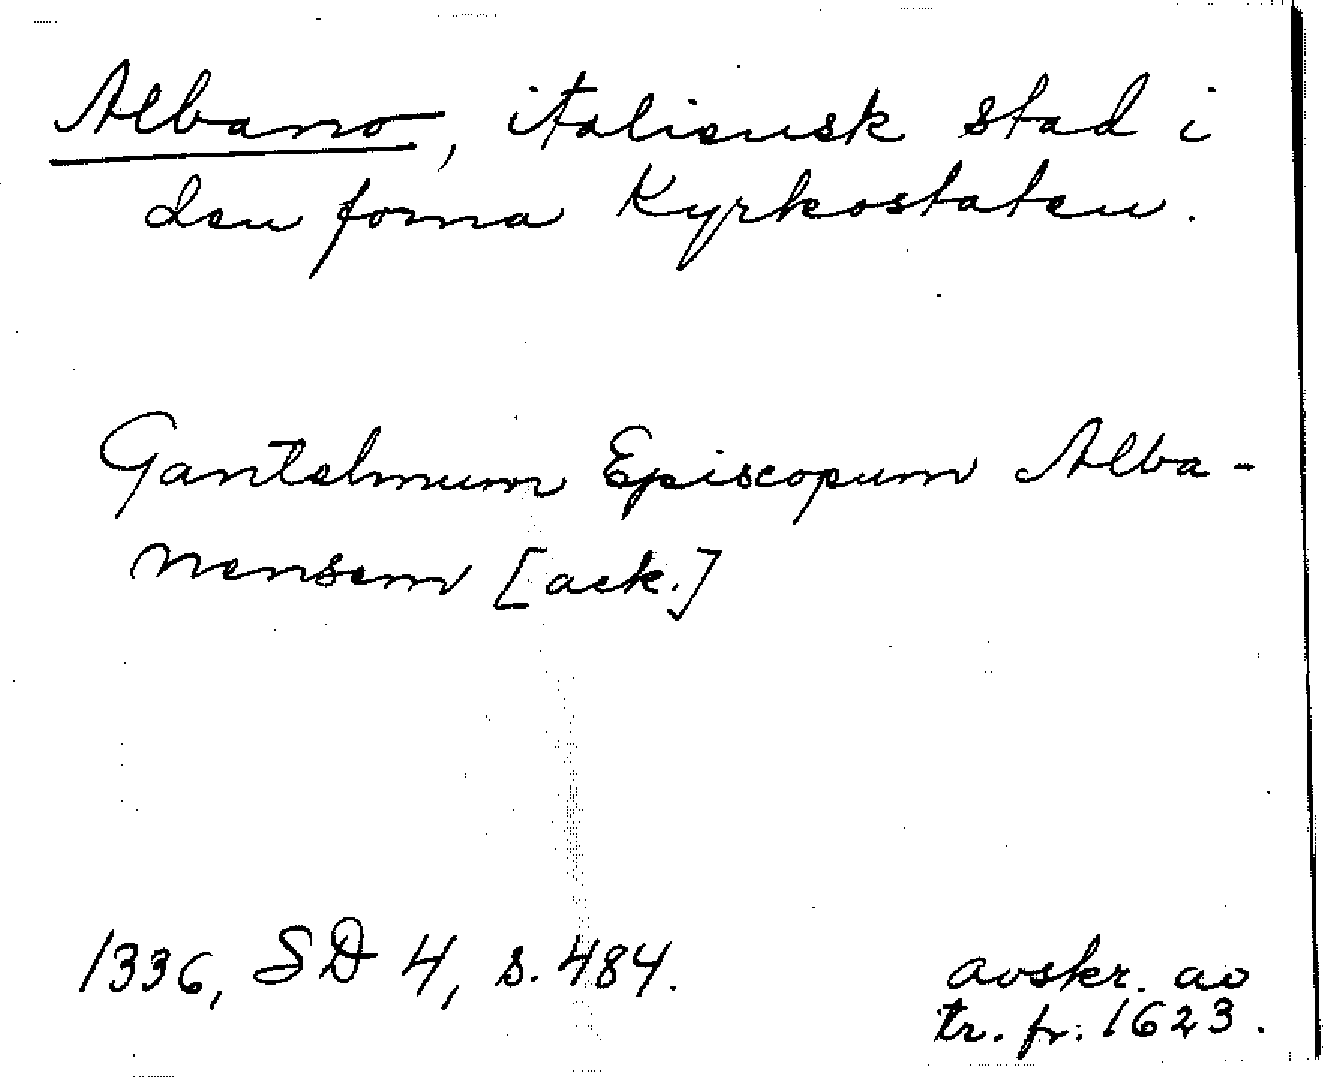 Albano, italiensk stad i
den forna Kyrkostaten.
Gantelmum Episcopum Alba-
nensem [ack.]
1336, SD 4, s. 484.
avskr. av
tr. fr. 1623.